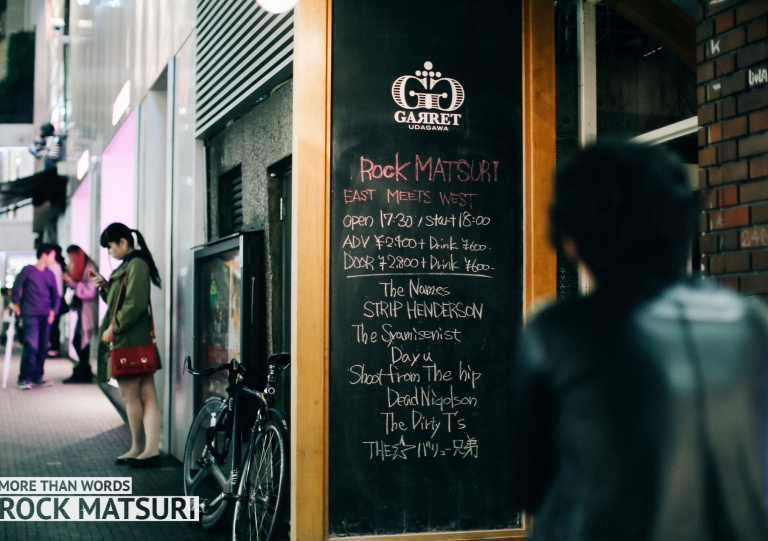 GAЯRET
UDAGAWA
Rock MATSURI
EAST MEETS WEST
open 17:30 / start 18:00
ADV ¥2,400 + Drink ¥600-
DOOR ¥2,800 + Drink ¥600-
The Names
STRIP HENDERSON
The Syamisenist
Dayu
Shoot from The hip
Dead Niqolson
The Dirty T's
THE☆バリュー兄弟
MORE THAN WORDS
ROCK MATSURI